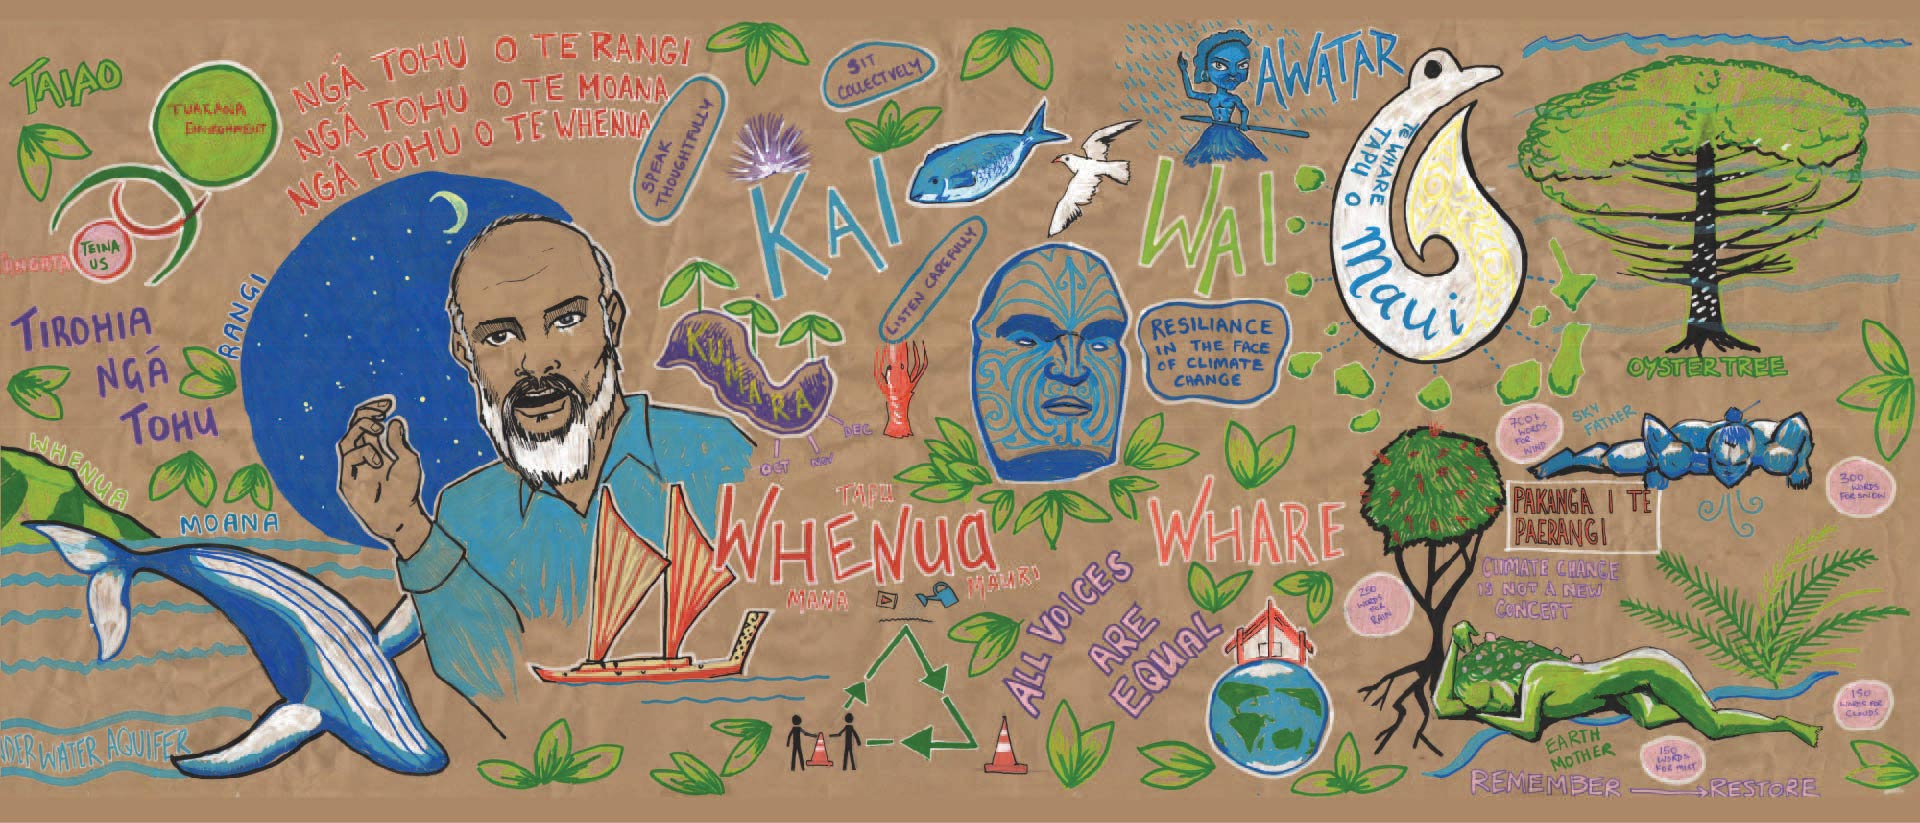 TAIAO
TUAKANA
NGÁ TOHU O TE RANGI
NGÁ TOHU O TE MOANA
NGÁ TOHU O TE WHENUA
TEINA
US
TIROHIA
NGÁ
TOHU
RANGI
WHENUA
MOANA
UNDER WATER AQUIFER
SPEAK
THOUGHTFULLY
SIT
COLLECTIVELY
KAI
LISTEN CAREFULLY
KUMARA
OCT
NOV
DEC
AWATAR
WAI
RESILIANCE
IN THE FACE
OF CLIMATE
CHANGE
TE WHARE
TAPU O
Maui
OYSTER TREE
TAPU
WHENUA
MANA
MAURI
WHARE
ALL VOICES
ARE
EQUAL
700+
WORDS
FOR
WIND
SKY
FATHER
300
WORDS
FOR SNOW
PAKANGA I TE
PAERANGI
CLIMATE CHANGE
IS NOT A NEW
CONCEPT
WORDS
FOR
RAIN
150
WORDS FOR
CLOUDS
EARTH
MOTHER
150
WORDS
REMEMBER
RESTORE